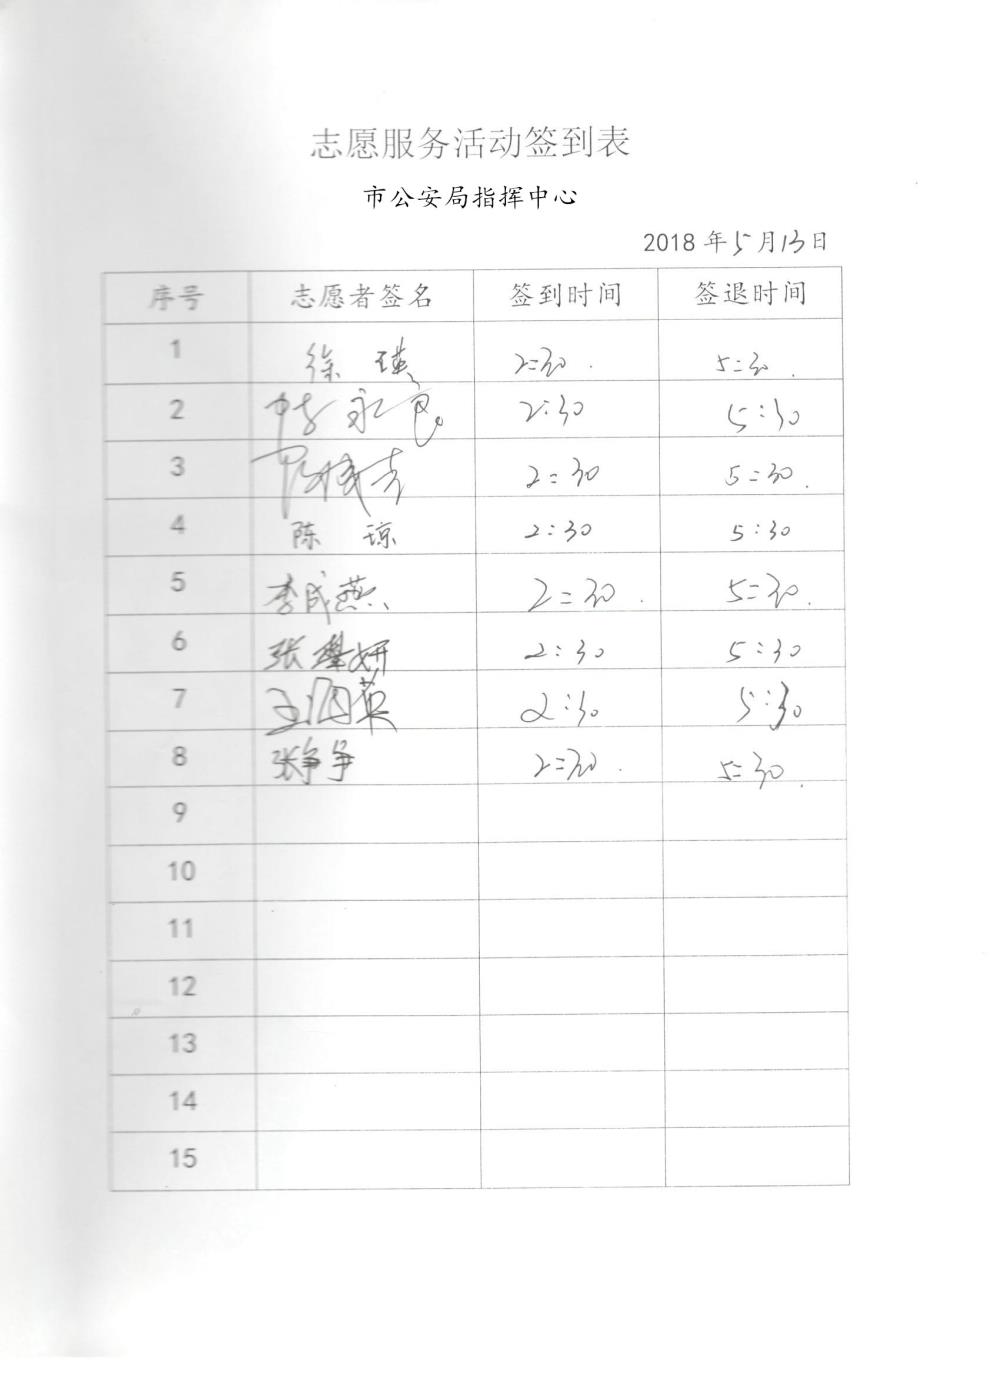 志愿服务活动签到表
市公安局指挥中心
2018年5月13日
序号 志愿者签名 签到时间 签退时间
1 徐瑛 2:30 5:30
2 永良 2:30 5:30
3 2:30 5:30
4 陈琼 2:30 5:30
5 李成燕 2:30 5:30
6 张 妍 2:30 5:30
7 王 英 2:30 5:30
8 张争争 2:30 5:30
9
10
11
12
13
14
15